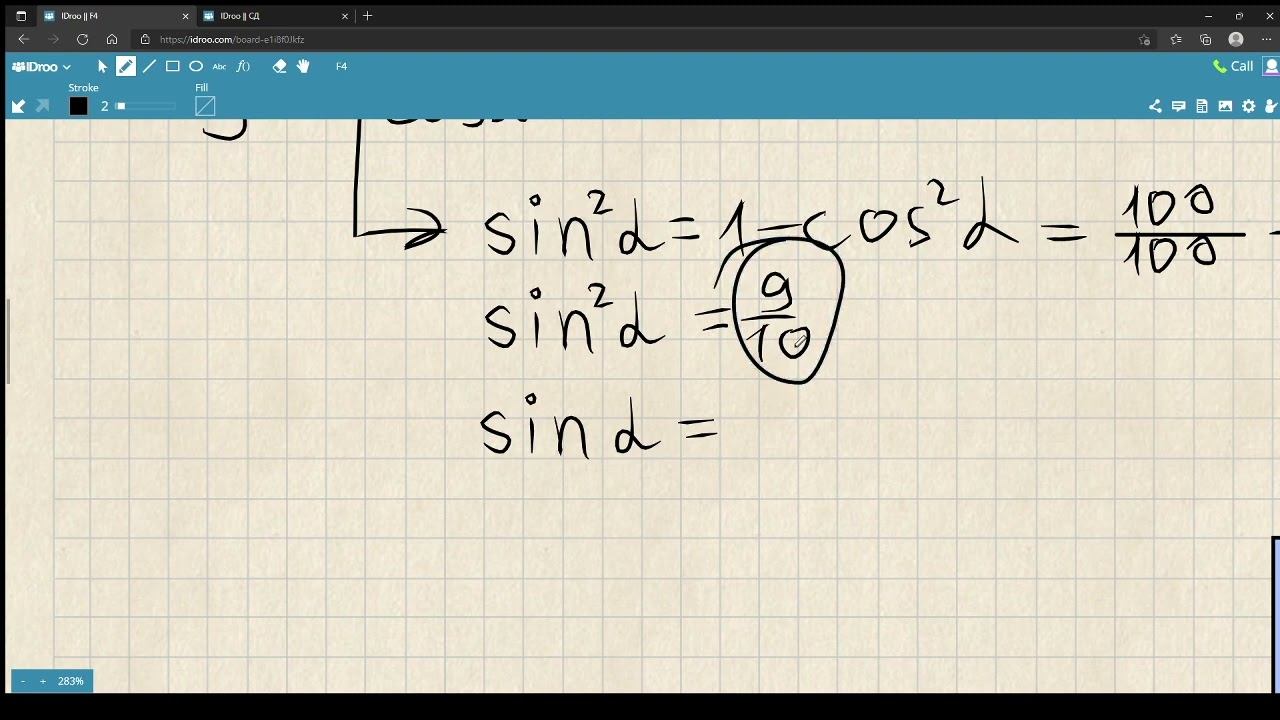 IDroo || F4
IDroo || СД
https://idroo.com/board-e1i8f0Jkfz
IDroo
Abc
f()
F4
Call
Stroke
Fill
2
sin²α = 1 - cos²α = 100/100 -
sin²α = 9/10
sin α =
- + 283%